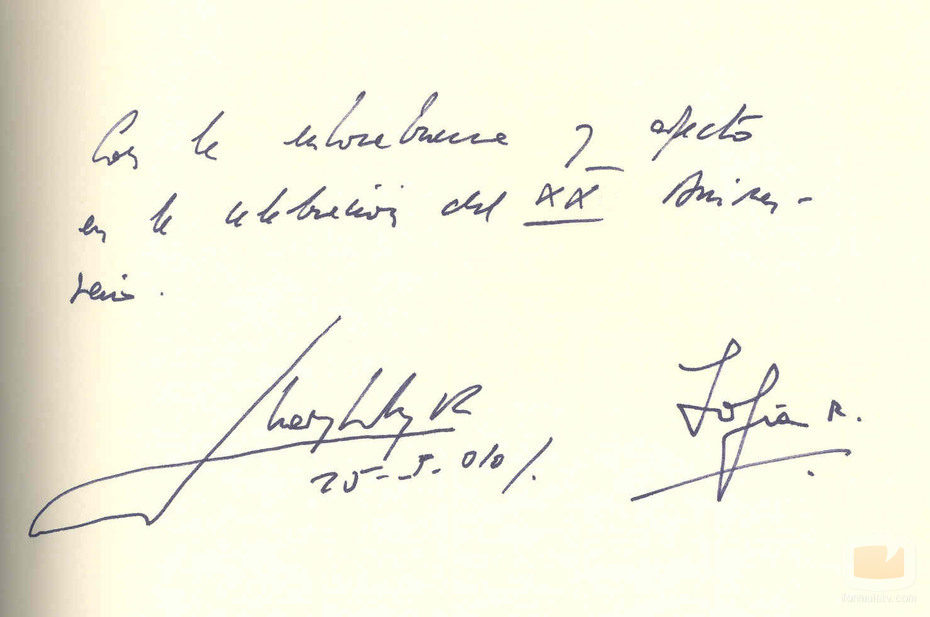 Con la enhorabuena y afecto
en la celebración del XX Aniver-
sario.
Juan Carlos R
Sofía R.
25-5-010/.
formulatv.com